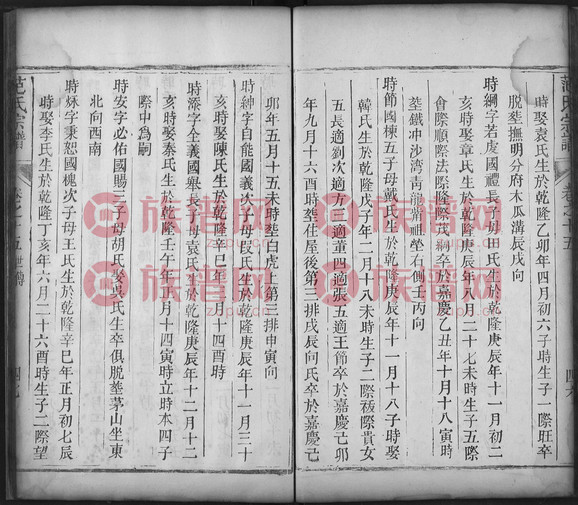 范氏宗譜
卷之十五
四六
時娶袁氏生於乾隆乙卯年四月初六子時生子一際旺卒
脫塟撫明分府木瓜溝辰戌向
時綱字若虞國禮長子母田氏生於乾隆庚辰年一月初二
亥時娶章氏生於乾隆庚辰年八月二十七未時生子五際
會際順際法際隆際茂綱卒於嘉慶乙丑年十月十八寅時
塟鐵冲沙湾青龍嘴祖塋右側壬丙向
時節國棟五子母戴氏生於乾隆庚辰年十一月十八子時娶
韓氏生於乾隆戊子年二月十八未時生子二際 際貴女
五長適劉次適方三適董四適張五適王節卒於嘉慶己卯
年九月十六酉時塟住屋後第三排戌辰向氏卒於嘉慶己
卯年五月十五未時塟白虎上第三排申寅向
時紳字自能國義次子母段氏生於乾隆庚辰年十一月三十
亥時娶陳氏生於乾隆辛巳年二月十四酉時
時添字全義國舉長子母袁氏生於乾隆庚辰年十二月十二
亥時娶秦氏生於乾隆壬午年正月十四寅時立時本四子
際中為嗣
時安字必佑國賜三子母胡氏娶吳氏生卒俱脫塟茅山坐東
北向西南
時烌字秉恕國槐次子母王氏生於乾隆辛巳年正月初七辰
時娶李氏生於乾隆丁亥年六月二十六酉時生子二際望
范氏宗譜
卷之十五 世傳
四七
族谱网
zupu.cn
族谱网
zupu.cn